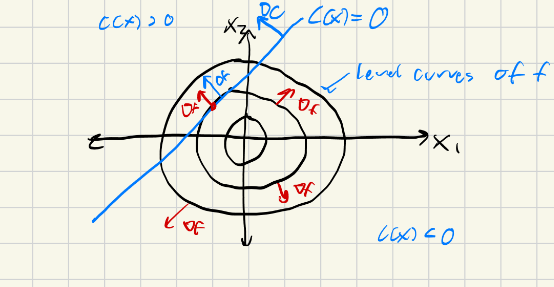 C(x) > 0
∇C
C(x) = 0
X₂
level curves of f
∇f
∇f
∇f
X₁
∇f
∇f
C(x) < 0